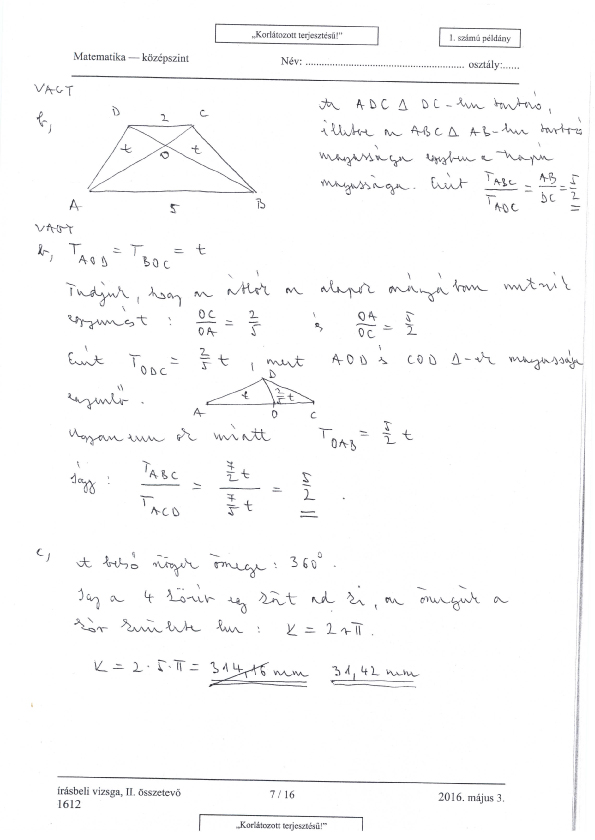 „Korlátozott terjesztésű!”
1. számú példány
Matematika — középszint
Név: ........................................................ osztály:......
VAGY
b,
D 2 C
t O t
A 5 B
Az ADC Δ DC-hez tartozó,
illetve az ABC Δ AB-hez tartozó
magassága egyben a trapéz
magassága. Ezért T_ABC / T_ADC = AB / DC = 5/2
VAGY
b, T_AOD = T_BOC = t
Tudjuk, hogy az átlók az alapok arányában metszik
egymást : OC/OA = 2/5 és OA/OC = 5/2
Ezért T_ODC = 2/5 t , mert AOD és COD Δ-ek magassága
egyenlő .
D
t 2/5 t
A O C
Ugyanezen ok miatt T_OAB = 5/2 t
Így : T_ABC / T_ACD = 7/2 t / 7/5 t = 5/2 .
c, A belső szögek összege : 360°.
Így a 4 körív egy kört ad ki, az összegük a
kör kerülete lesz : K = 2rπ.
K = 2 · 5 · π = 314,16 mm 31,42 mm
írásbeli vizsga, II. összetevő
7 / 16
2016. május 3.
1612
„Korlátozott terjesztésű!”